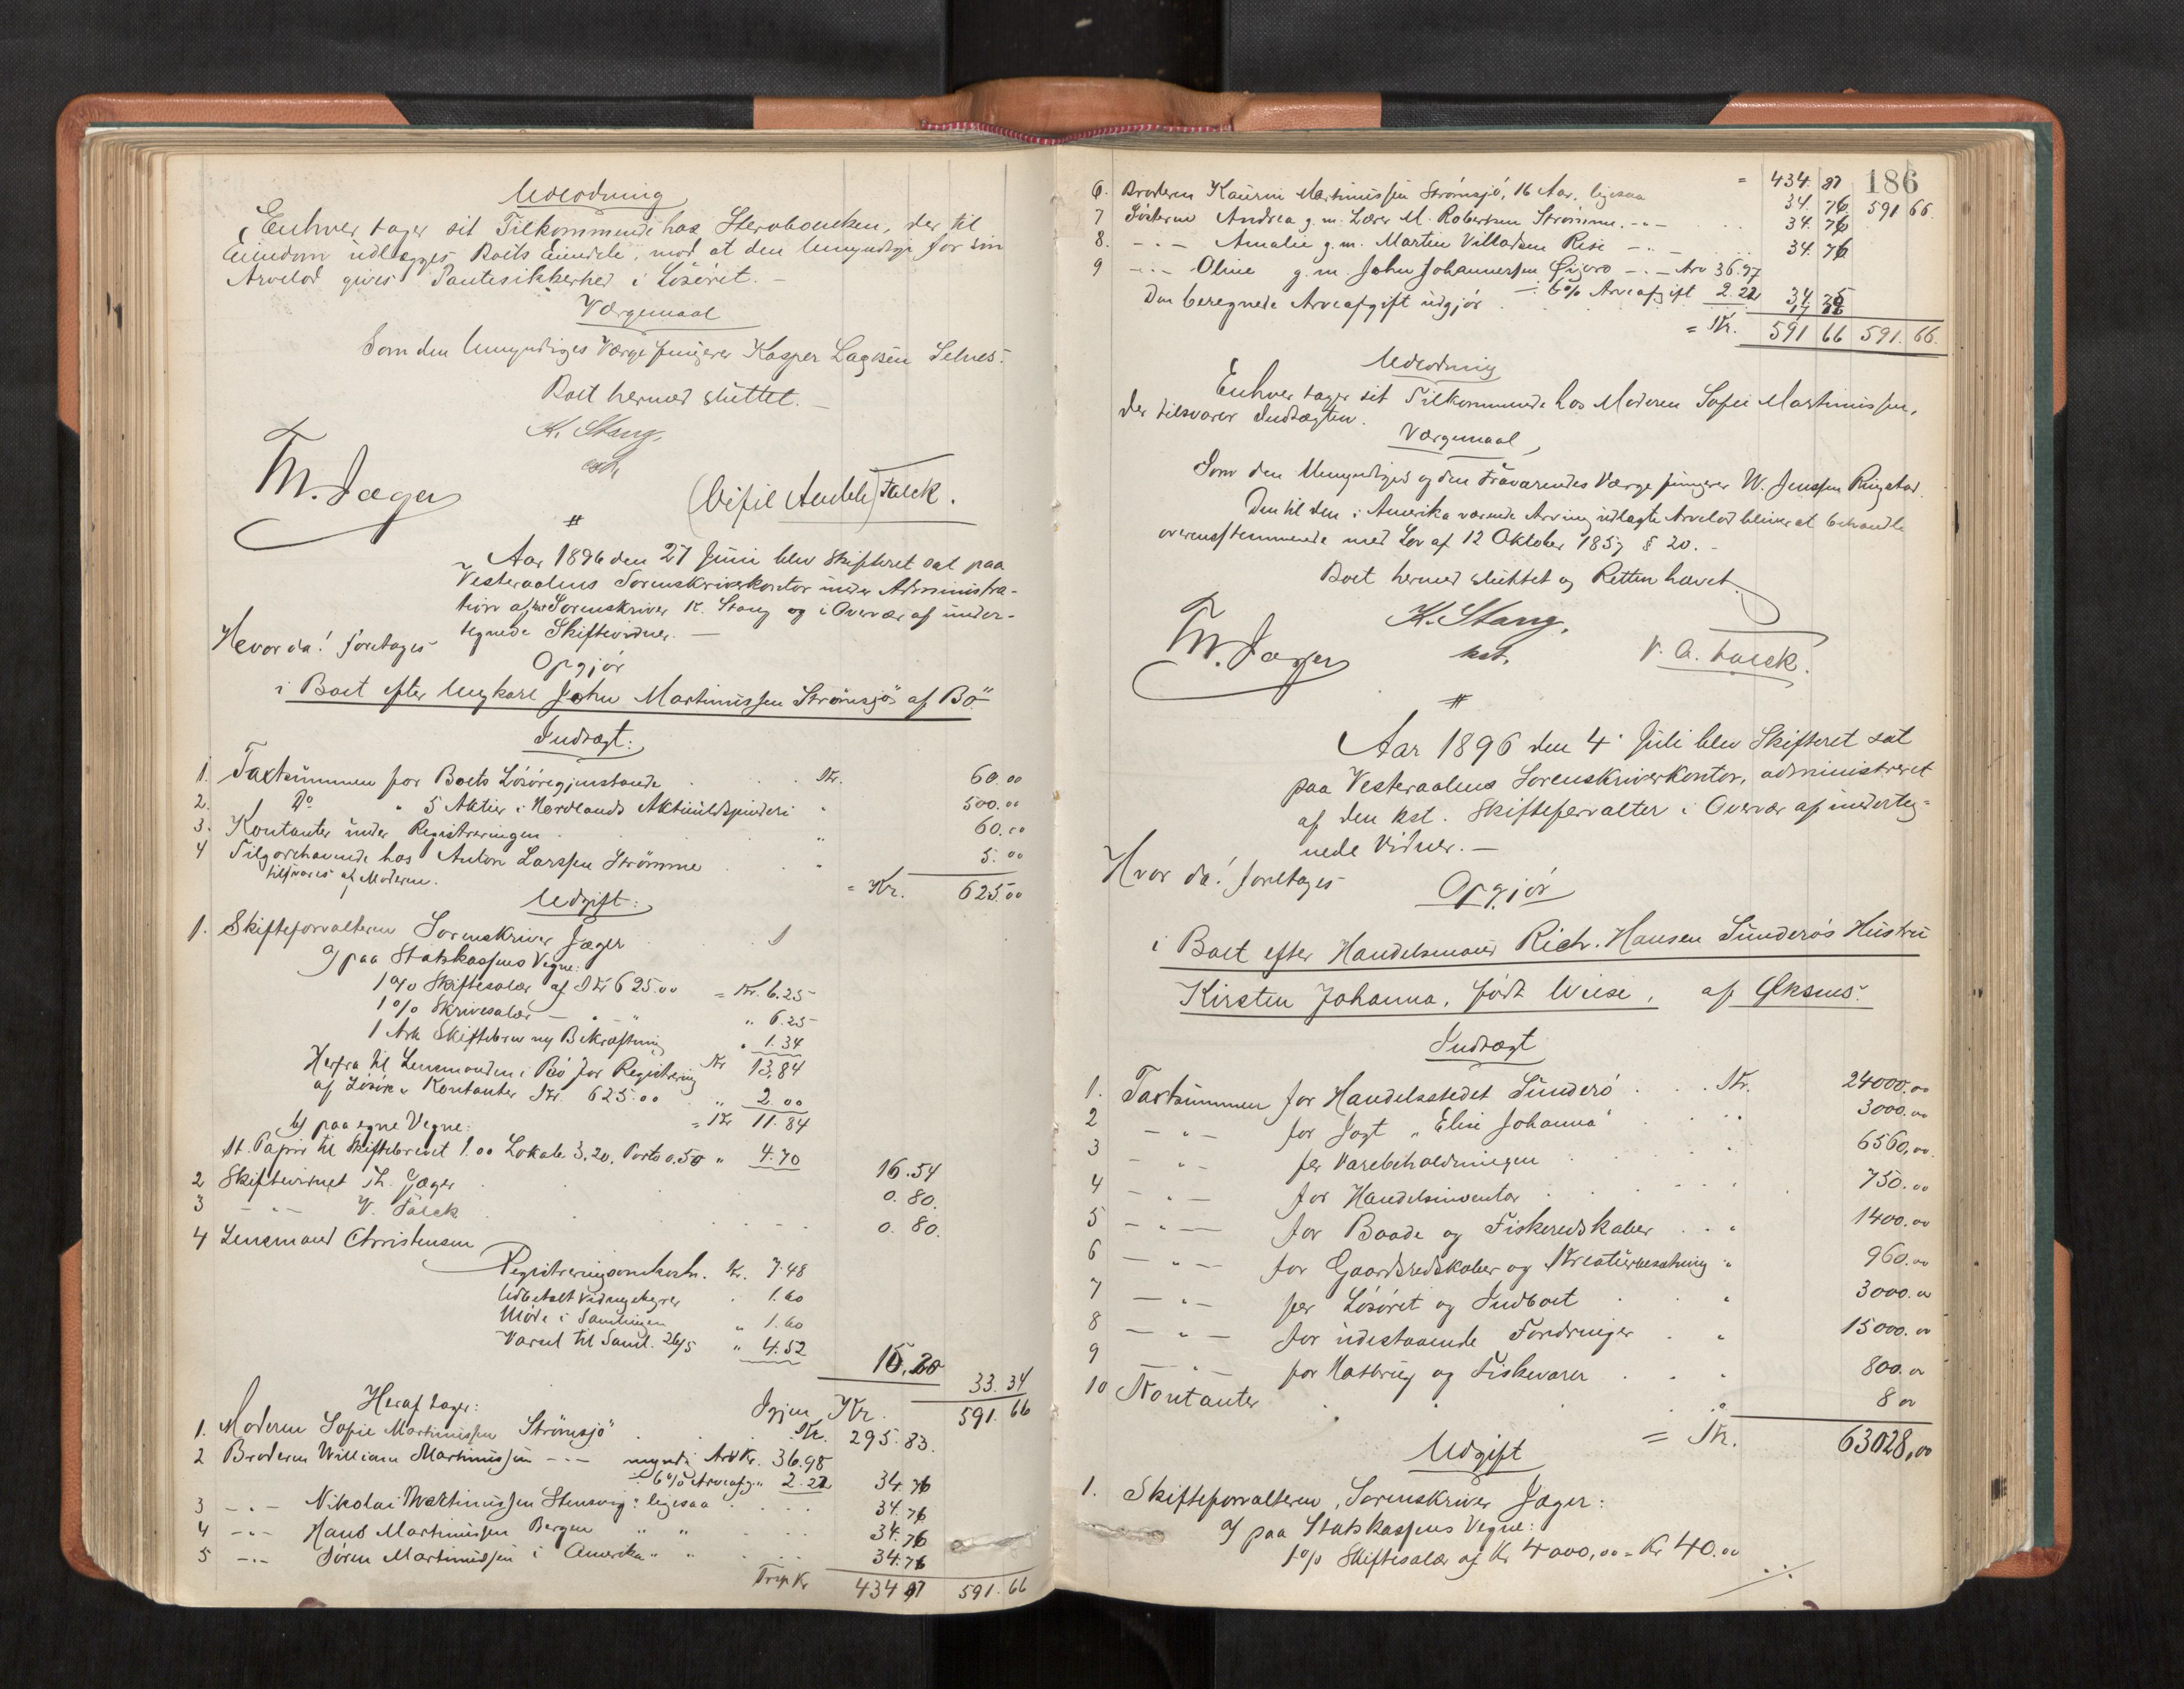 Udlodning
Enhver tager sit Tilkommende hos Stervboenken, der til
Eiendom udlægges Boets Eiendele, mod at den Umyndige for sin
Arvelod gives Pantesikkerhed i Løsøret. –
Værgemaal
Som den Umyndiges Værge fungerer Kasper Lagesen Selnes.
Boet hermed sluttet. –
K. Stang,
cst.
Th. Jæger
Falck.
#
Aar 1896 den 27 Juni blev Skifteret sat paa
Vesteraalens Sorenskriverkontor under Administra-
tion af kst Sorenskriver K. Stang og i Overvær af under-
tegnede Skiftevidner. –
Hvor da! foretages
Opgjør
i Boet efter Ungkarl John Martinussen Strømsjö af Bö
Indtægt:
1. Taxtsummen for Boets Løsøregjenstande . . . Kr. 60.00
2. Do " 5 Aktier i Nordlands Aktieuldspinderi " 500.00
3. Kontanter under Registreringen . . " 60.00
4 Tilgodehavende hos Anton Larssen Strömme . . " 5.00
tilsvares af Moderen.
= Kr. 625.00
Udgift:
1. Skifteforvalteren Sorenskriver Jæger
a) paa Statskassens Vegne:
1 % Skiftesalær af Kr 625.00 = Kr. 6.25
1 % Skrivesalær – " – " " 6.25
1 Ark Skiftebrev og Bekræftning " 1.34
Kr 13.84
Herfra til Lensmanden i Bö for Registrering
af Løsøre & Kontanter Kr. 625.00 " 2.00
= Kr 11.84
b) paa egne Vegne:
st. Papir til Skiftebrevet 1.00 Lokale 3.20. Porto 0.50 " 4.70
16.54
2 Skiftevidnet Th. Jæger . 0.80.
3 – " – V. Falck . . . . 0.80.
4 Lensmand Christensen
Registreringsomkostn. Kr. 7.48
Udbetalt Vidnegebyrer " 1.60
Møde i Samlingen " 1.60
Varsel til Saml. 26/5 " 4.52
15.20
33.34
Igjen Kr. 591.66
Heraf tager:
1. Moderen Sofie Martinussen Strömsjö . . Kr. 295.83.
2 Broderen William Martinussen – " – myndig Arv Kr. 36.98
÷ 6 % Arveafg. " 2.22 34.76
3 – " – Nikolai Martinussen Stensvig: ligesaa . . . . 34.76
4 – " – Hans Martinussen Bergen " " . . . 34.76
5 – " – Søren Martinussen i Amerika " " . . . 34.76
Trsp Kr 434 87 591.66
186
= 434. 87 591 66
6. Broderen Kaurin Martinussen Strömsjö, 16 Aar, ligesaa 34. 76
7 Søsteren Andrea g. m. Lærer M. Robertsen Strömme. – " – . . 34. 76
8. – " – Amalie g. m. Martin Villadsen Rise – " – . . 34. 76
9 – " – Oline g. m. John Johannessen Øijoro – " – Arv 36.97
÷ 6% Arveafgift 2.22 34. 75
Den beregnede Arveafgift udgjør . . . . . 17 76
= Kr. 591 66 591. 66.
Udlodning
Enhver tager sit Tilkommende hos Moderen Sofie Martinussen,
der tilsvarer Indtægten.
Værgemaal
Som den Umyndiges og den Fraværendes Værge fungerer W. Jenssen Ringstad.
Den til den i Amerika værende Arving udlagte Arvelod bliver at behandle
overensstemmende med Lov af 12 Oktober 1857 § 20. –
Boet hermed sluttet og Retten hævet.
K. Stang,
kst.
Th. Jæger
V. A. Falck.
#
Aar 1896 den 4. Juli blev Skifteret sat
paa Vesteraalens Sorenskriverkontor, administreret
af den kst. Skifteforvalter i Overvær af underteg-
nede Vidner. –
Hvor da! foretages
Opgjør
i Boet efter Handelsmand Rich. Hansen Sunderøs Hustru
Kirsten Johanna, født Wiese, af Øksnes.
Indtægt
1. Taxtsummen for Handelsstedet Sunderö . . . Kr. 24000.00
2 – " – for Jagt „Elise Johanna" . . . 3000.00
3 – " – for Varebeholdningen . . . 6560.00.
4 – " – for Handelsinventar . . . . 750.00
5 – " – for Baade og Fiskeredskaber . . " 1400.00
6 – " – for Gaardsredskaber og Kreaturbesætning " 960.00
7 – " – for Løsøret og Indboet . . " 3000.00
8 – " – for udestaaende Fordringer . " 15000.00
9 – " – for Matbrug og Fiskevarer . . " 800.00
10 Kontanter . . . . " 8 00
= Kr. 63028,00
Udgift
1. Skifteforvalteren, Sorenskriver Jæger:
a) paa Statskassens Vegne:
1 % Skiftesalær af Kr 4000,00 = Kr 40.00